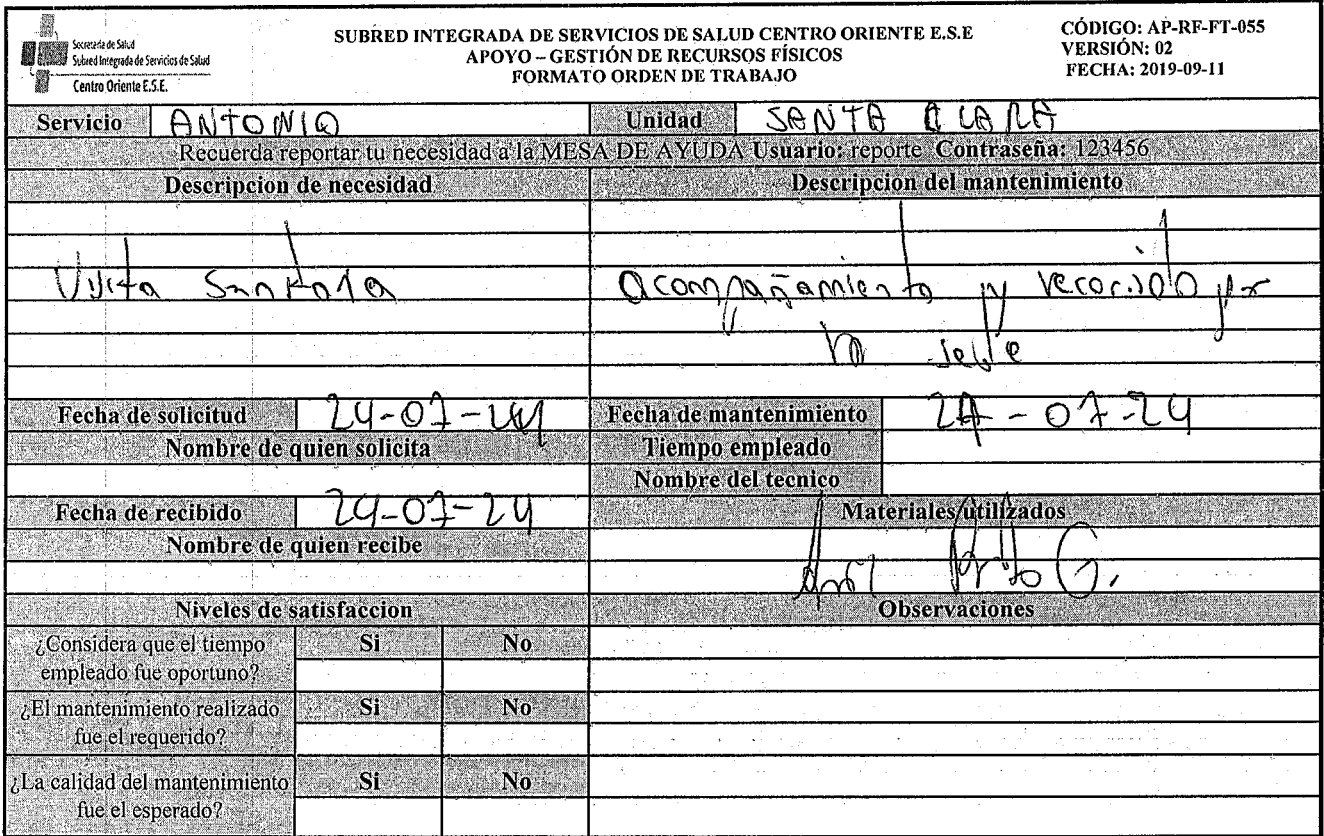 Secretaría de Salud
Subred Integrada de Servicios de Salud
Centro Oriente E.S.E.
SUBRED INTEGRADA DE SERVICIOS DE SALUD CENTRO ORIENTE E.S.E
APOYO – GESTIÓN DE RECURSOS FÍSICOS
FORMATO ORDEN DE TRABAJO
CÓDIGO: AP-RF-FT-055
VERSIÓN: 02
FECHA: 2019-09-11
Servicio ANTONIO Unidad SANTA CLARA
Recuerda reportar tu necesidad a la MESA DE AYUDA Usuario: reporte Contraseña: 123456
Descripcion de necesidad Descripcion del mantenimiento
acompañamiento y recorrido por
la sede
Fecha de solicitud 24-07-24 Fecha de mantenimiento 24-07-24
Nombre de quien solicita Tiempo empleado
Nombre del tecnico
Fecha de recibido 24-07-24 Materiales utilizados
Nombre de quien recibe
Niveles de satisfaccion Observaciones
¿Considera que el tiempo empleado fue oportuno? Si No
¿El mantenimiento realizado fue el requerido? Si No
¿La calidad del mantenimiento fue el esperado? Si No